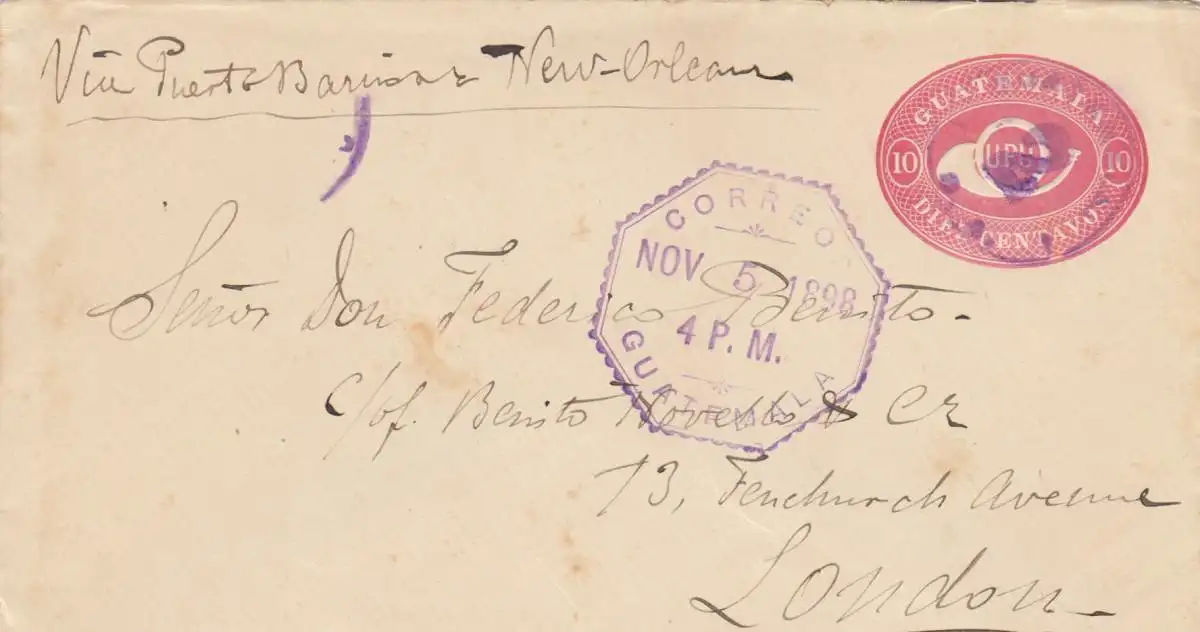 Via Puerto Barrios & New-Orleans
GUATEMALA
10 UPU 10
DIEZ CENTAVOS
CORREO
NOV 5 1898
4 P. M.
GUATEMALA
Señor Don Federico Benito.
c/of. Benito Novello &
13, Fenchurch Avenue
London